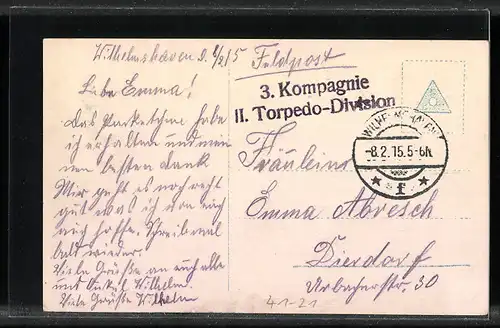 Wilhelmshaven d. 8/2/15
Liebe Emma!
Das Packetchen habe
ich erhalten und
besten Dank
Mir geht es noch recht
gut was ich von euch
auch hoffe. Schreib mal
bald wieder.
Viele Grüße an euch alle
mit Onkel Wilhelm.
Viele Grüße Wilhelm
Feldpost
3. Kompagnie
II. Torpedo-Division
WILHELMSHAVEN
-8.2.15.5-6N.
* f *
Fräulein
Emma Abresch
Dierdorf
Urbacherstr. 30
41-21